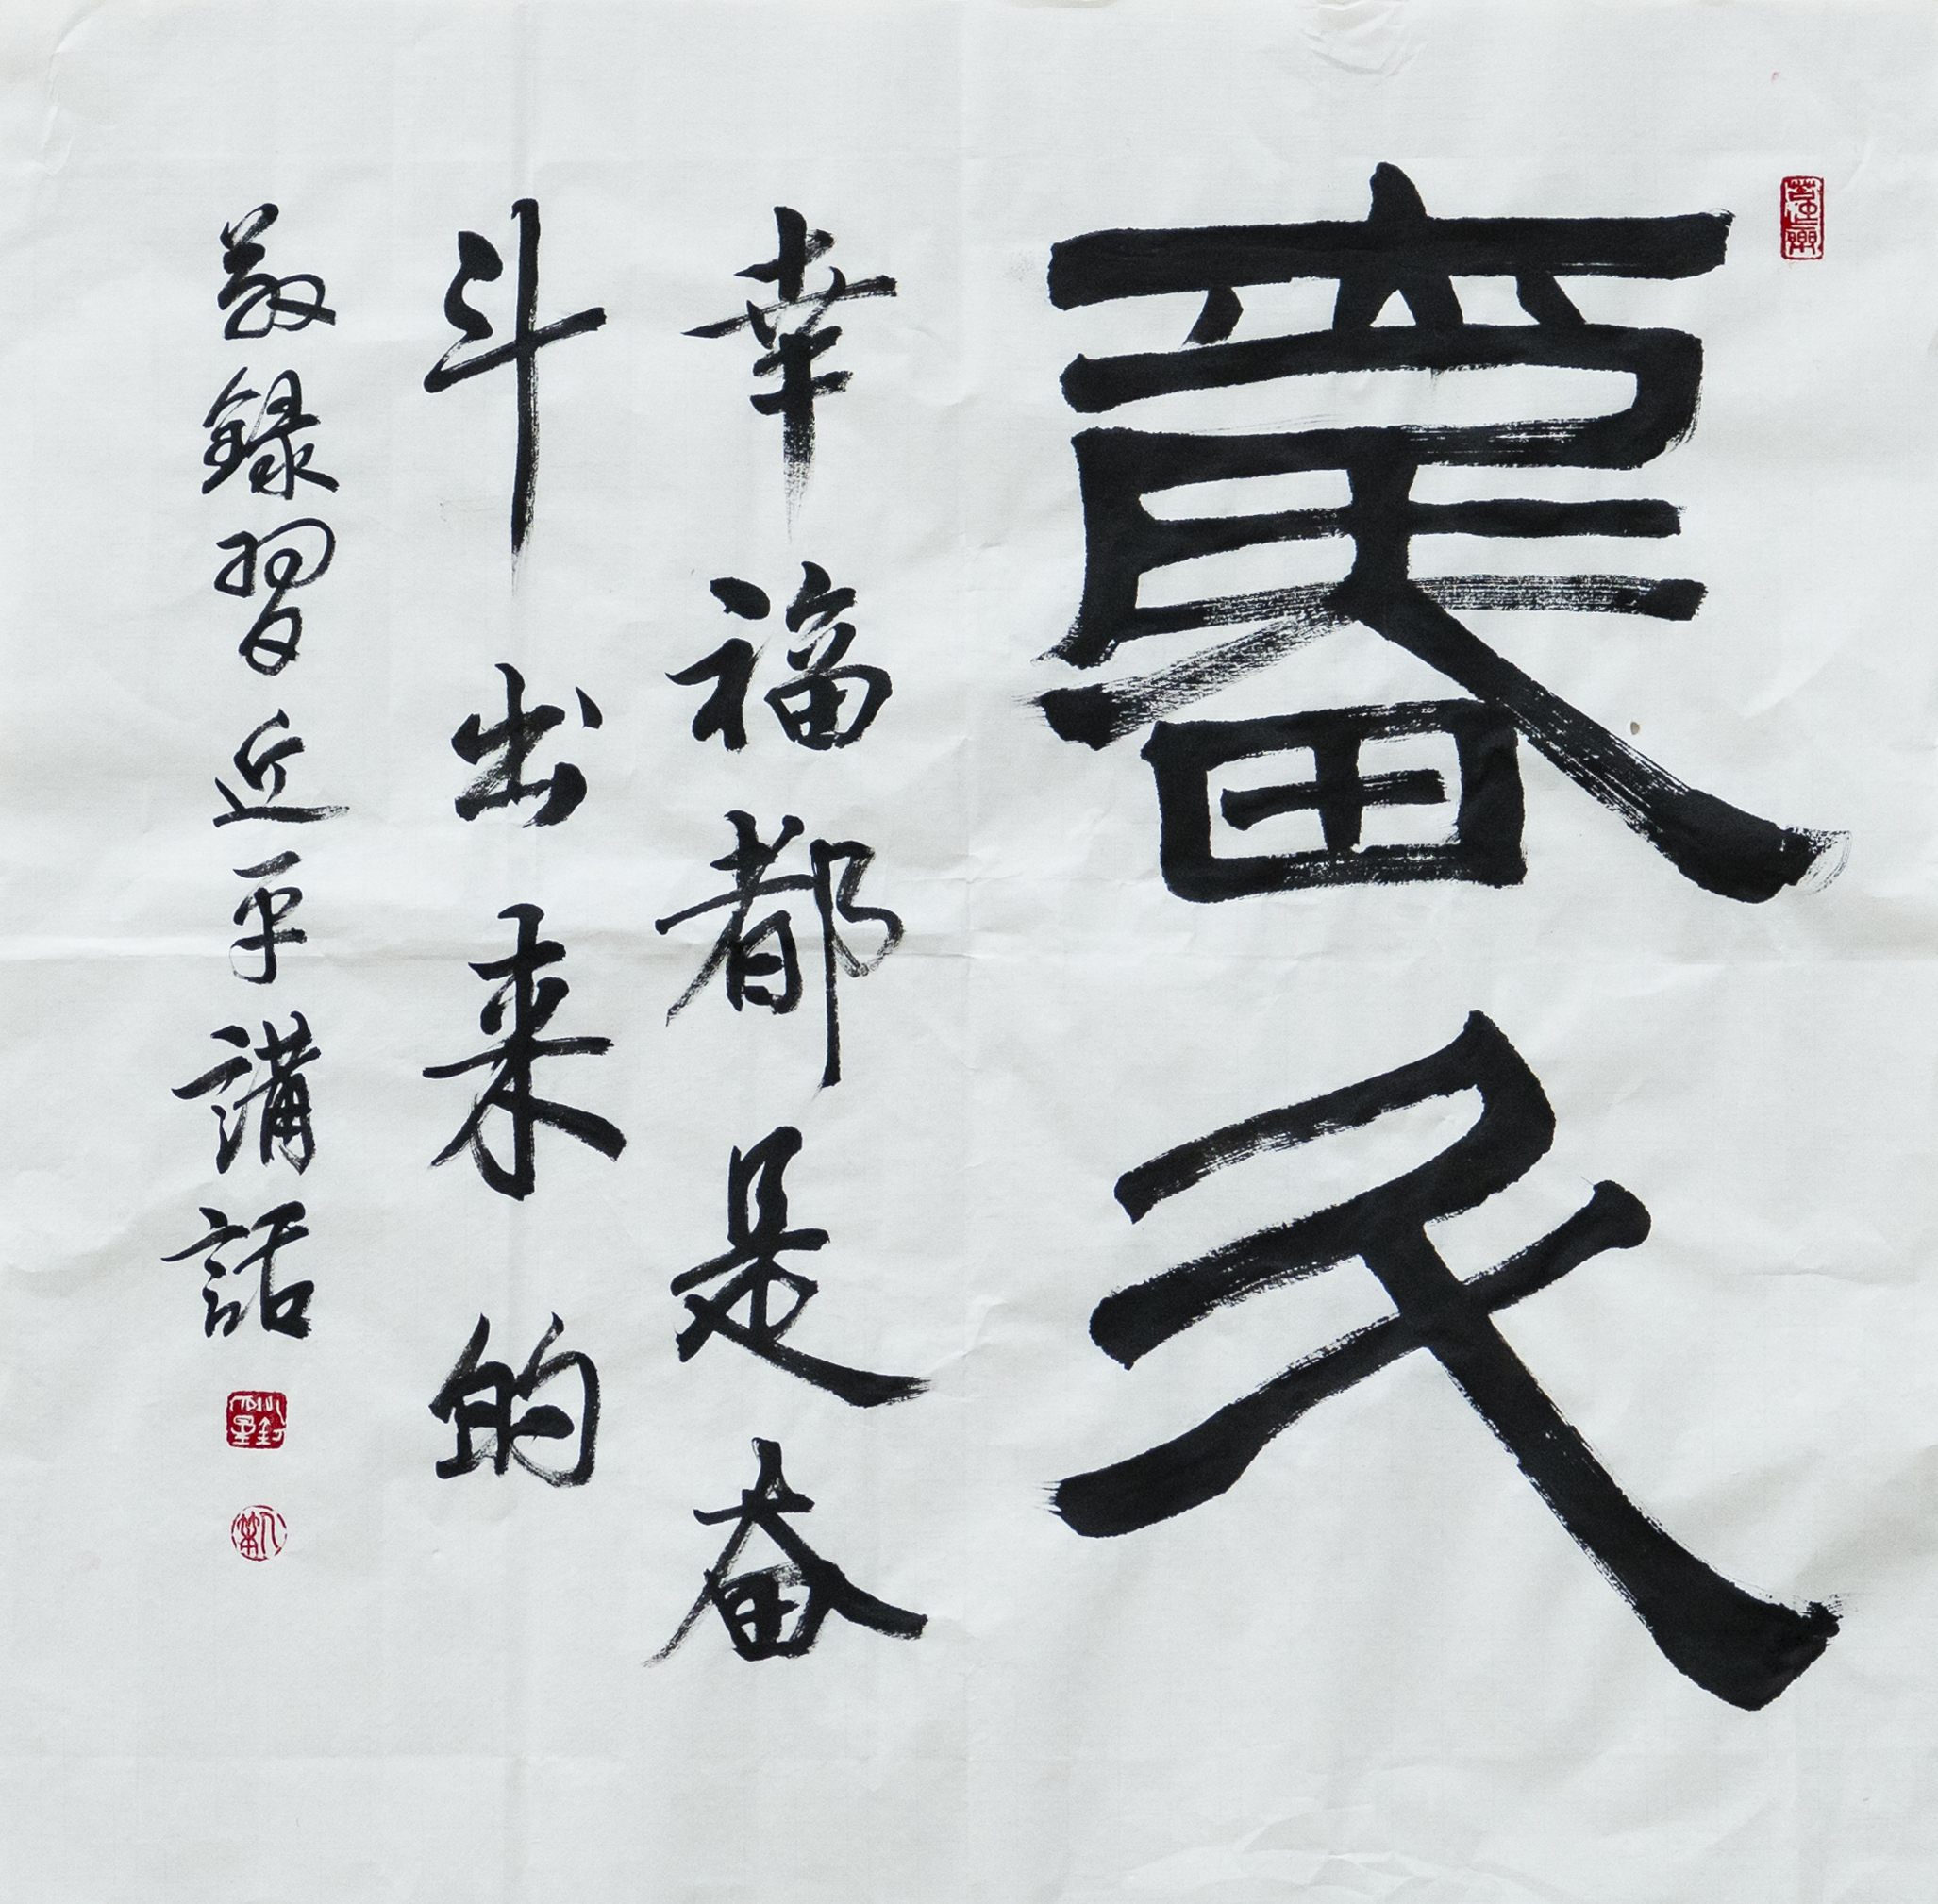 奮斗
幸福都是奋
斗出来的
敬録習近平講話